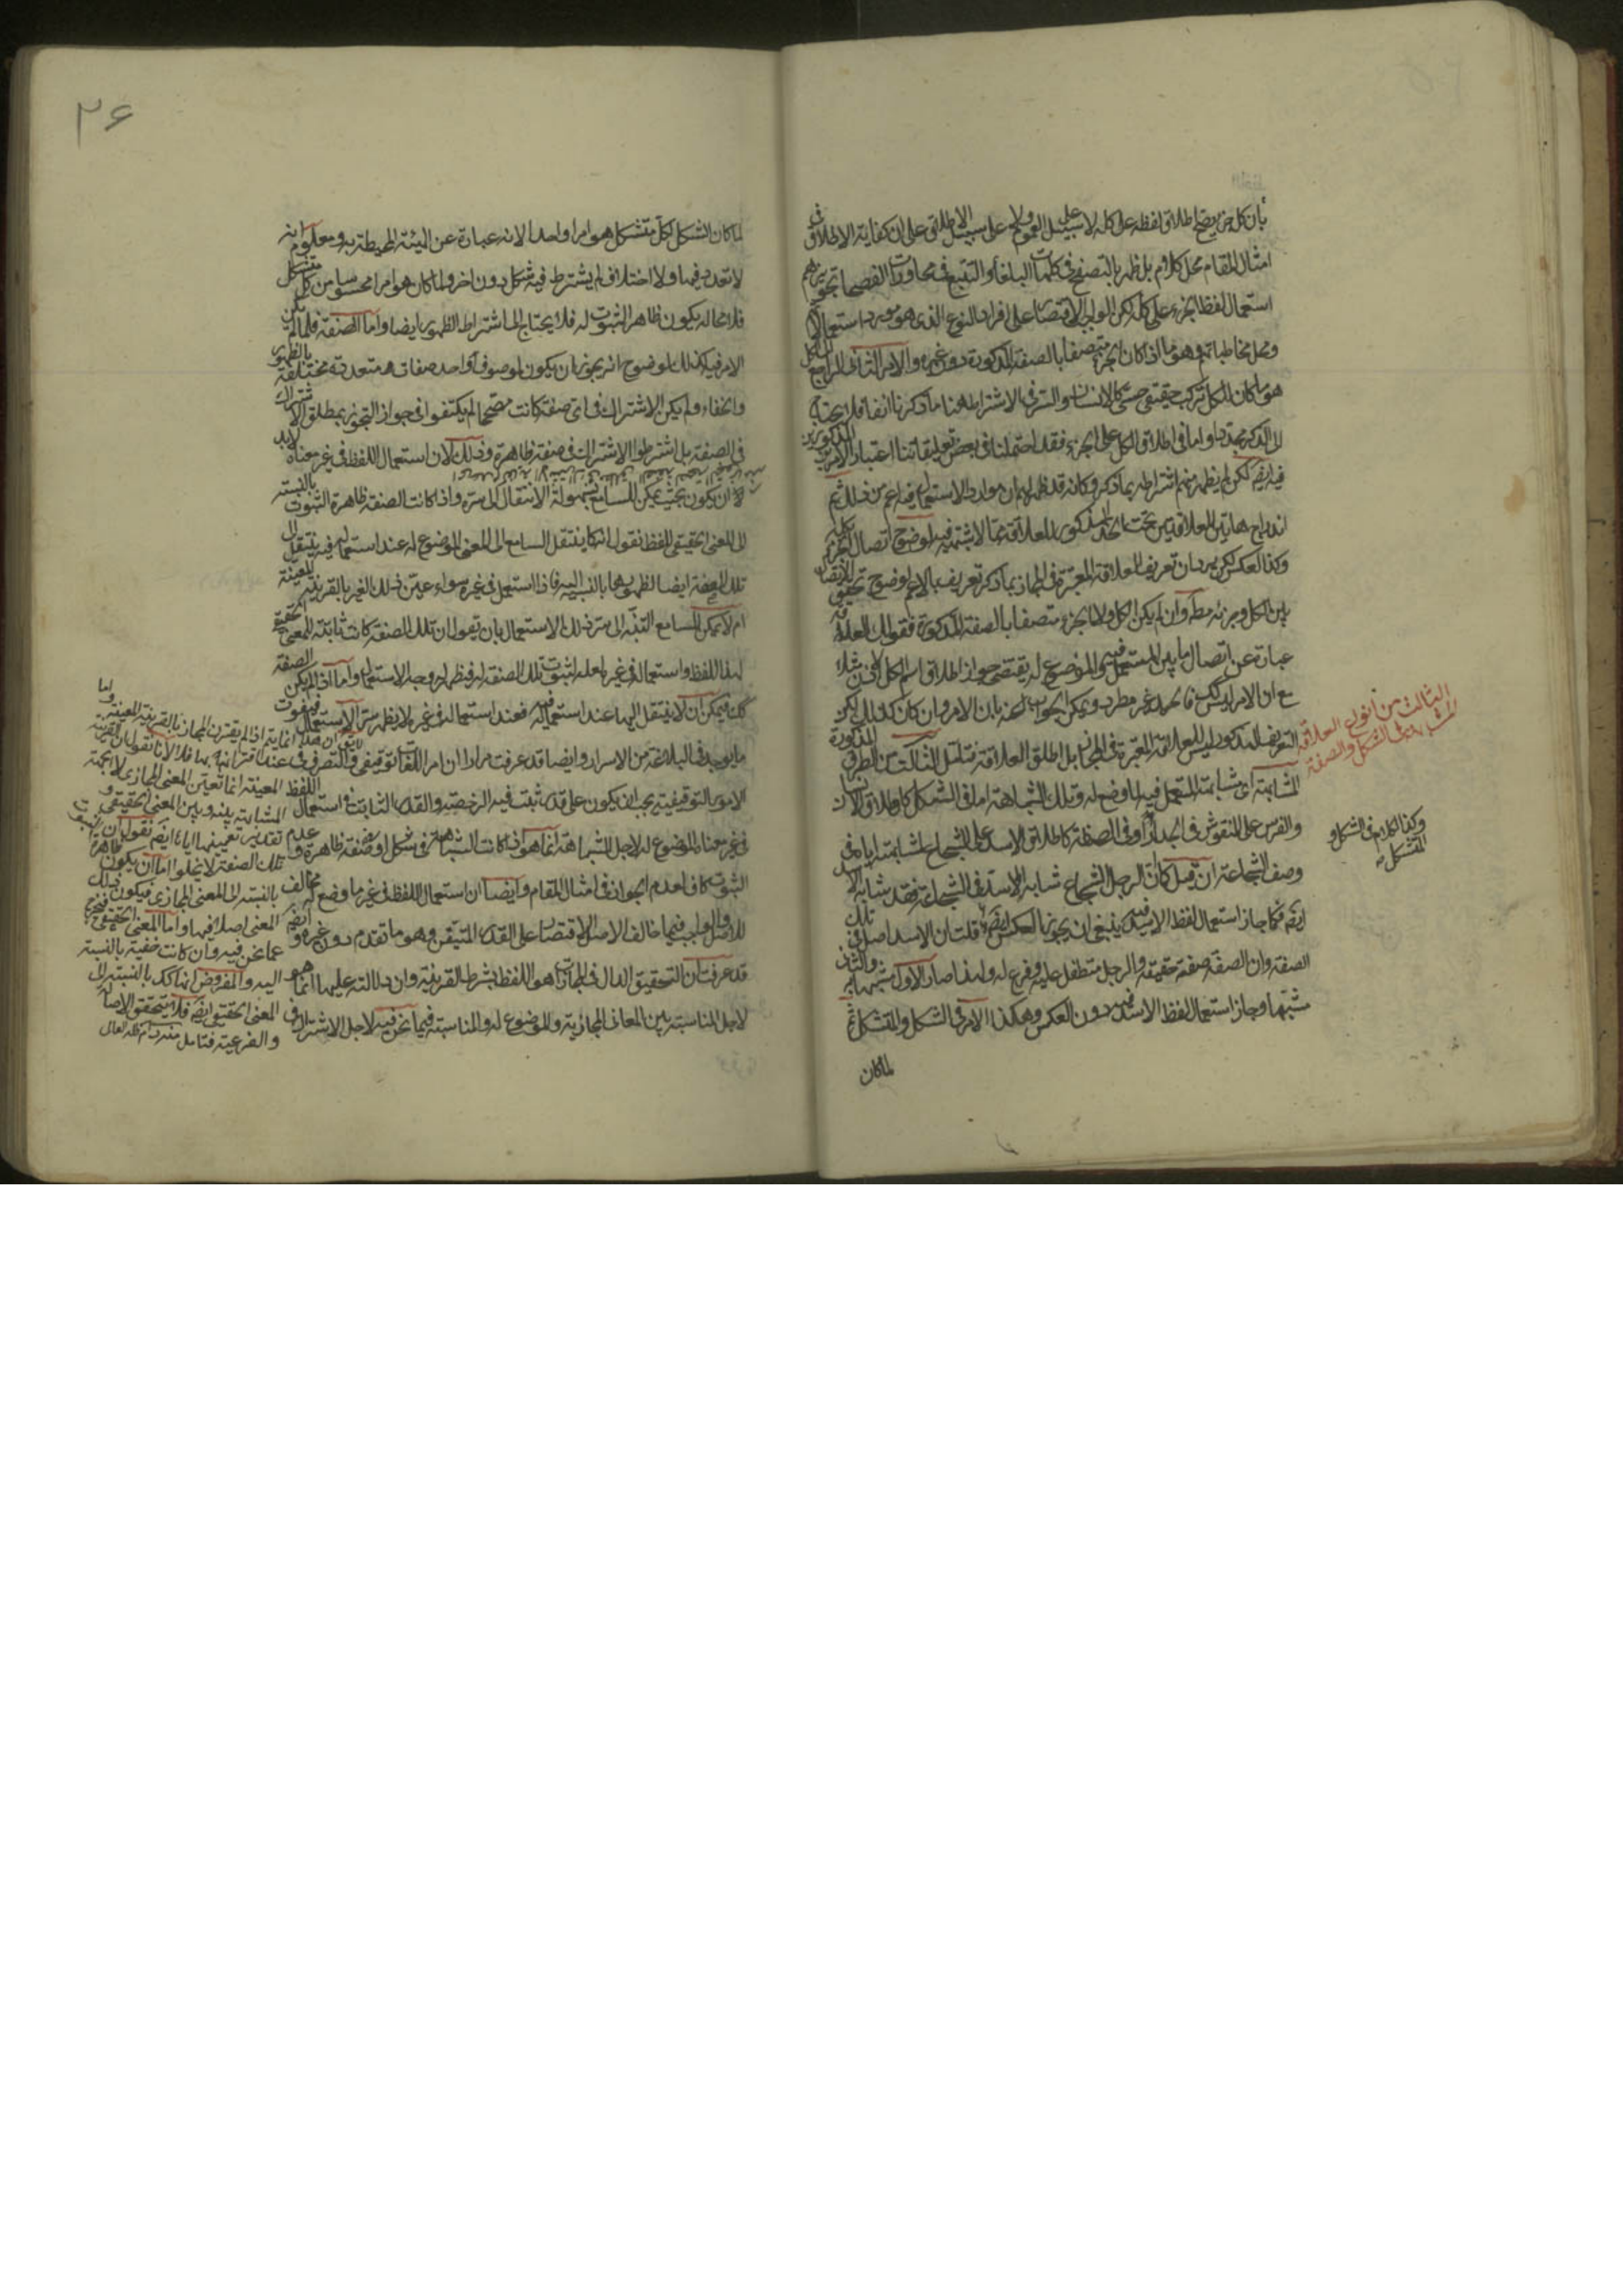 بان كل جزء يصح اطلاق لفظه على كله لا على سبيل العموم ولا على سبيل الاطلاق على ان كفاية الاطلاق في
امثال المقام محل كلام بل ظهر بالتصفح في كلمات البلغاء والتتبع في محاورات الفصحاء تجويزهم
استعمال لفظ الجزء على كله لكن الواجب الاقتصار على افراد النوع الذي هو مورد استعمالاتهم
ومحل مخاطباتهم وهو ما اذا كان الجزء متصفا بالصفة المذكورة دون غيره والامر الثاني الراجع الى الكل
هو ما كان للكل تركب حقيقي حسي كالانسان والسر في الاشتراط هنا ما ذكرنا انفا فلا يحتاج
الى الذكر مجددا واما في اطلاق الكل على الجزء فقد احتملنا في بعض تعليقاتنا اعتبار الامرين المذكورين
فيه ايضا لكن لم يظهر منهم اشتراطه بما ذكر وكانه قد ظهر لهم ان موارد الاستعمال فيه اعم من ذلك ثم
اندراج هاتين العلاقتين تحت الحد المذكور للعلاقة مما لا شبهة فيه لوضوح اتصال الجزء بكله
وكذا العكس لكن يرد ان تعريف العلاقة المعتبرة في المجاز بما ذكر تعريف بالاعم لوضوح تحقق الاتصال
بين الكل وجزئه مطلقا وان لم يكن الكل ولا الجزء متصفا بالصفة المذكورة فقولك العلاقة
عبارة عن اتصال ما بين المستعمل فيه والموضوع له يقتضي جواز اطلاق اسم الكل مثلا
مع ان الامر ليس كك فالحد غير مطرد ويمكن الجواب عنه بان الامر وان كان كذلك لكن
التعريف المذكور ليس للعلاقة المعتبرة في المجاز بل لمطلق العلاقة فتامل الثالث من الطرق المذكورة
المشابهة اي مشابهة المستعمل فيه لما وضع له وتلك المشابهة اما في الشكل كاطلاق الانسان
والفرس على المنقوش في الجدار او في الصفة كاطلاق الاسد على الشجاع لمشابهته اياه في
وصف الشجاعة ان قيل كما ان الرجل الشجاع شابه الاسد في الشجاعة فقد شابه الاسد
ايضا فكما جاز استعمال لفظ الاسد فيه ينبغي ان يجوز العكس ايضا قلت ان الاسد اصل في تلك
الصفة وان الصفة صفة حقيقة والرجل متطفل عليه وفرع له ولهذا صار الاول مشبها به والثاني
مشبها وجاز استعمال لفظ الاسد فيه دون العكس وهكذا الامر في الشكل والمتشكل ثم
لما كان
الثالث من انواع العلاقة
المشابهة في الشكل والصفة
وكذا الكلام في الشكل و
المتشكل منه
۲۶
لما كان الشكل لكل متشكل هو امرا واحدا لانه عبارة عن الهيئة المحيطة به ومعلوم انه
لا تعدد فيها ولا اختلاف لم يشترط فيه شكل دون اخر ولما كان هو امرا محسوسا من كل متشكل
فلا محالة يكون ظاهر الثبوت له فلا يحتاج الى اشتراط الظهور ايضا واما الصفة فلما لم يكن
الامر فيها كذلك لوضوح انه يجوز ان يكون لموصوف واحد صفات متعددة مختلفة بالظهور
والخفاء ولم يكن الاشتراك في اي صفة كانت مصححا لم يكتفوا في جواز التجوز بمطلق الاشتراك
في الصفة بل اشترطوا الاشتراك في صفة ظاهرة وذلك لان استعمال اللفظ في غير معناه لا بد
لان يكون بحيث يمكن للسامع بسهولة الانتقال الى سره واذا كانت الصفة ظاهرة الثبوت بالنسبة
الى المعنى الحقيقي للفظ نقول انه كما ينتقل السامع الى المعنى الموضوع له عند استعماله فيه ينتقل الى
تلك الصفة ايضا لظهورها بالنسبة اليه فاذا استعمل في غيره سواء عين ذلك الغير بالقرينة المعينة
ام لا يمكن للسامع التنبه الى سر ذلك الاستعمال بان يقول ان تلك الصفة كانت ثابتة للمعنى الحقيقي
لهذا اللفظ واستعماله في غيره لعله لثبوت تلك الصفة له فيظهر له وجه الاستعمال واما اذا لم يكن الصفة
كك فيمكن ان لا ينتقل اليها عند استعماله فيه فعند استعماله في غيره لا يظهر سر الاستعمال فيفوت
ما يوجد في البلاغة من الاسرار وايضا قد عرفت مرارا ان امر اللغات توقيفي والتصرف في
الامور التوقيفية يجب ان يكون على قدر ثبت فيه الرخصة والقدر الثابت في استعمال اللفظ
في غير معناه الموضوع له لاجل المشابهة انما هو اذا كانت المشابهة في شكل او صفة ظاهرة وعدم
الثبوت كاف لعدم الجواز في امثال المقام وايضا ان استعمال اللفظ في غير ما وضع له مخالف
للاصل والواجب فيما خالف الاصل الاقتصار على القدر المتيقن وهو ما تقدم دون غيره وايضا
قد عرفت ان التحقيق الدال في المجازات هو اللفظ بشرط القرينة وان دلالته عليها انما هو
لاجل المناسبة بين المعاني المجازية والموضوع له والمناسبة فيما نحن فيه لاجل الاشتراك في
لا يقال ان هذا انما يتم اذا لم يقترن المجاز بالقرينة المعينة واما
عند اقترانه بها فلا لانا نقول ان القرينة
المعينة انما تعين المعنى المجازي لا جهة
المشابهة بينه وبين المعنى الحقيقي و
تقدير تعيينها اياه ايضا نقول ان
تلك الصفة لا يخلو اما ان يكون ظاهرة
بالنسبة الى المعنى المجازي فيكون ذلك
المعنى اصلا فيها واما المعنى الحقيقي فخرج
عما نحن فيه وان كانت خفية بالنسبة
اليه والمفروض انها كك بالنسبة الى
المعنى الحقيقي ايضا فلا يتحقق الاصالة
والفرعية فتامل منه دام ظله العالي